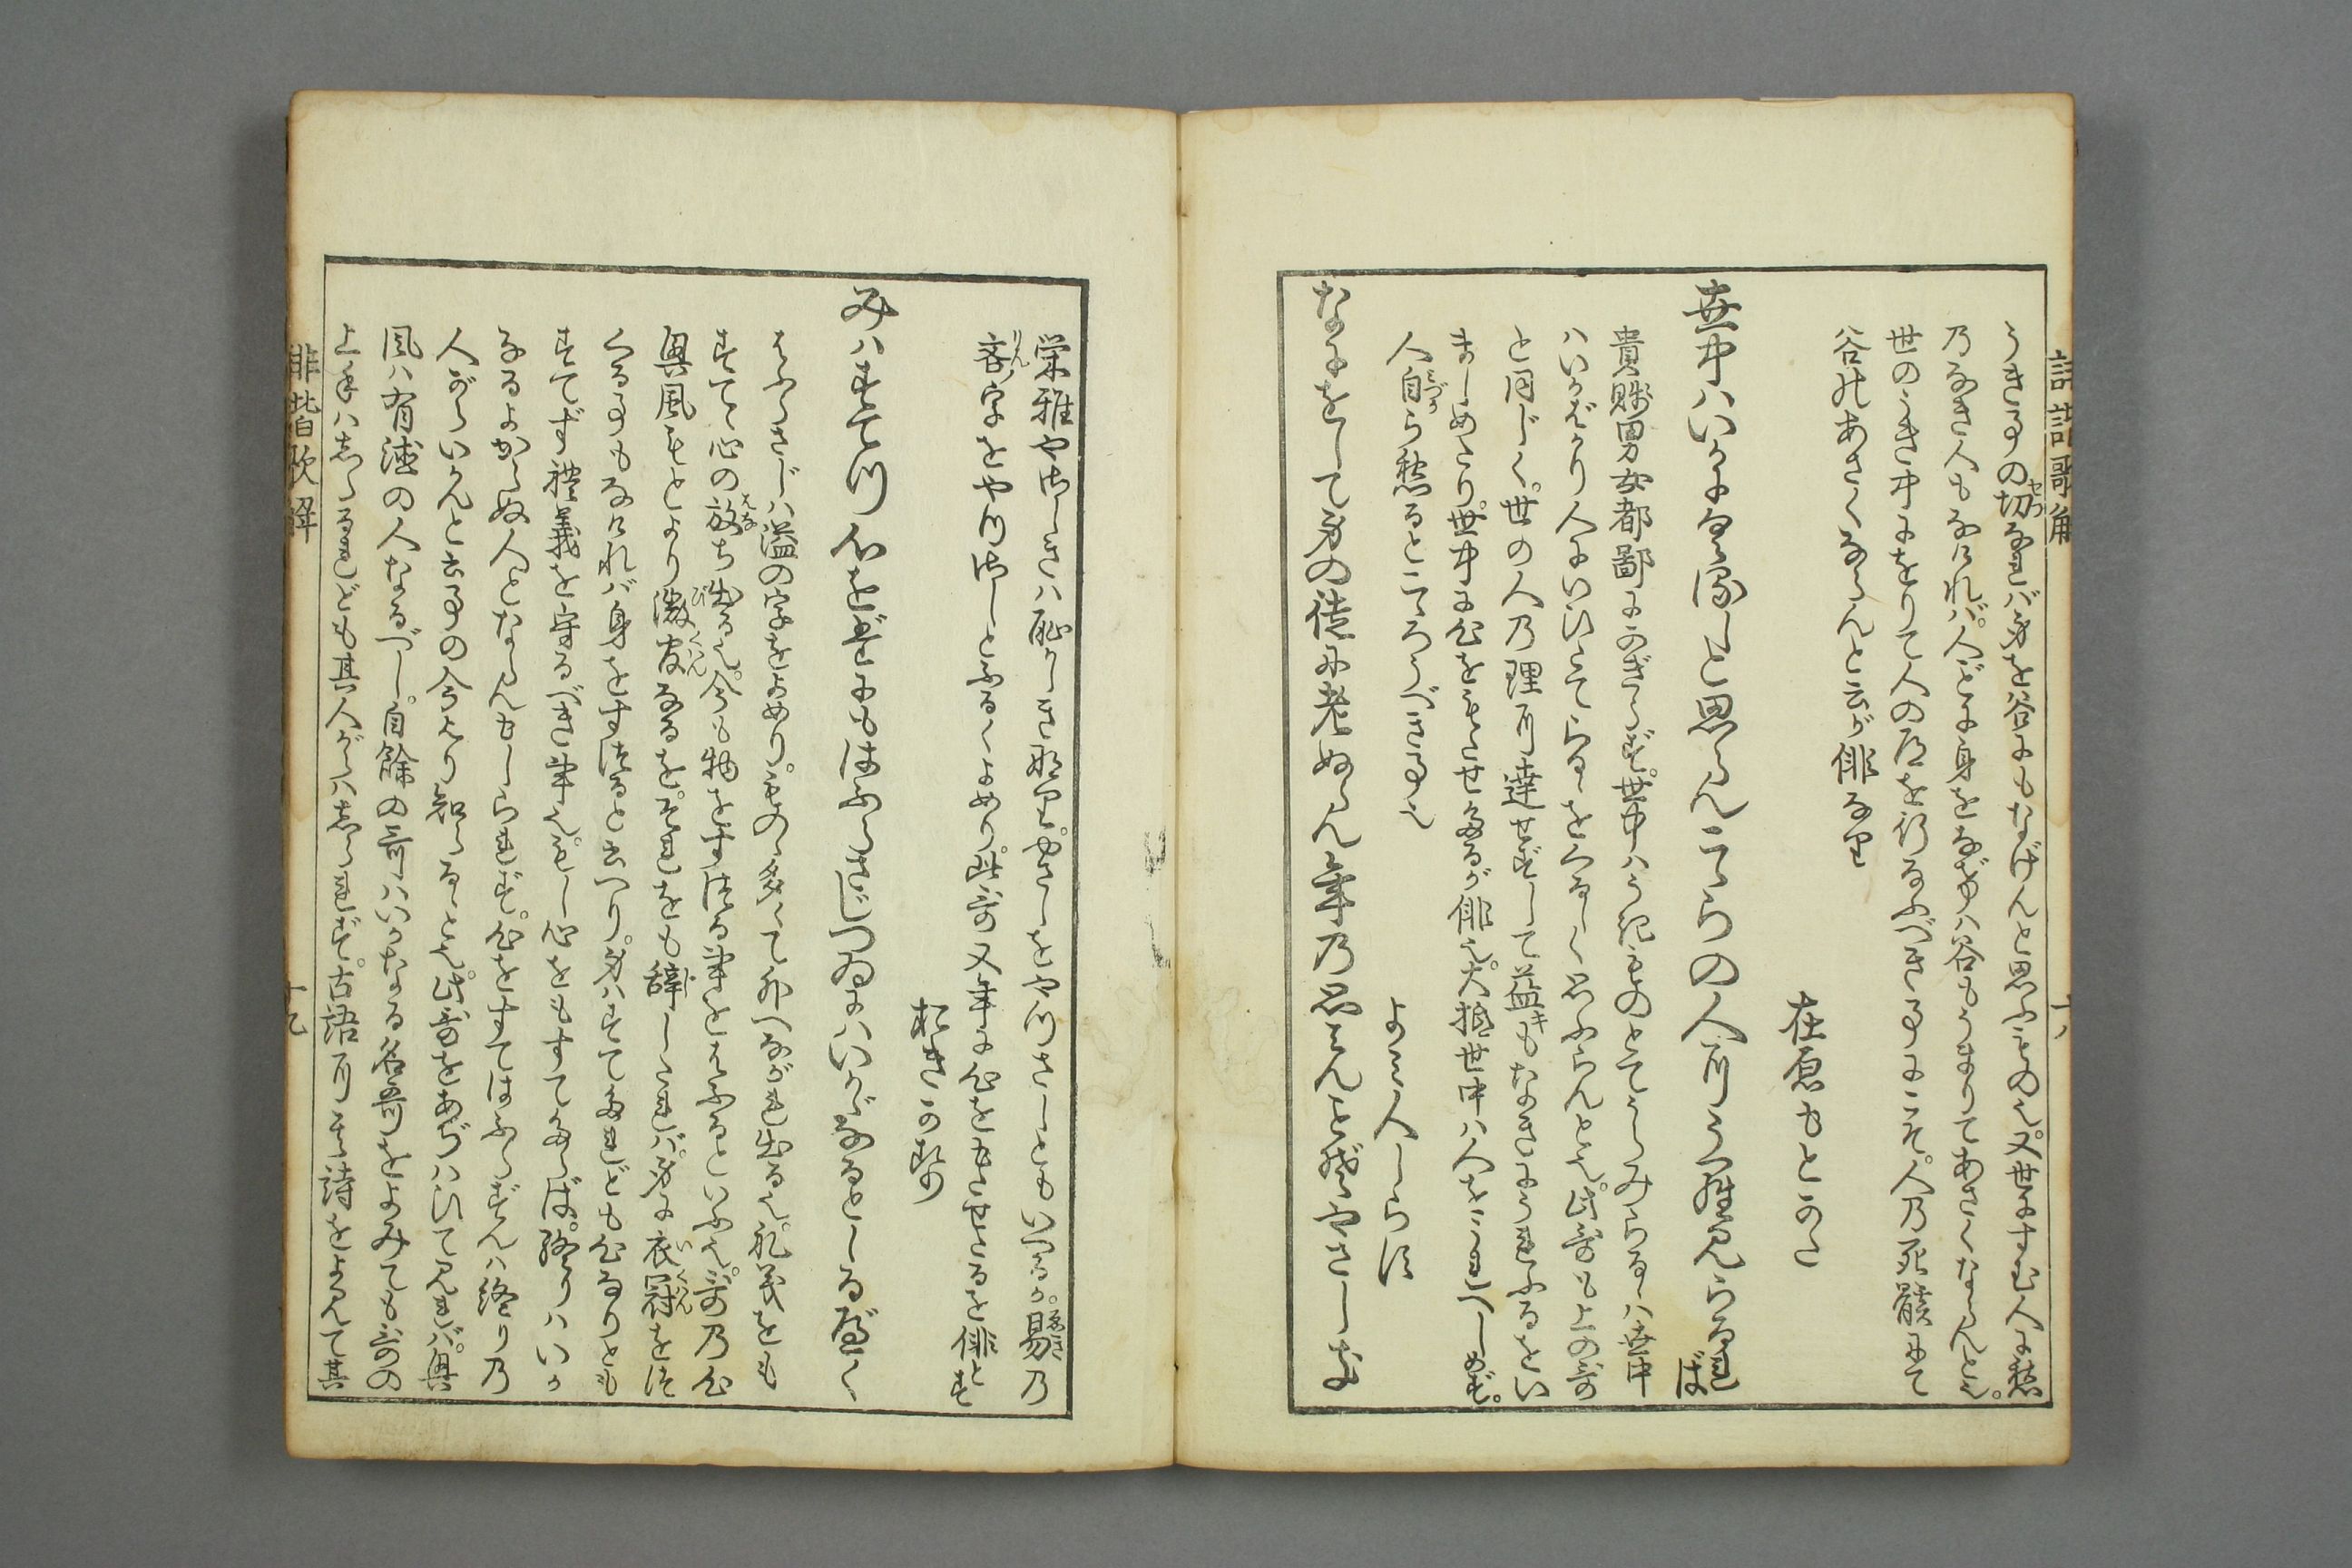 うき事の切なれバ身を谷にもなげんと思ふもの也又世にすむ人に愁
乃なき人もなけれバ人ごとに身をなげバ谷もうまりてあさくならんと也
世のうき中にをりて人の道を行なふべき事にこそ人乃死骸にて
谷のあさくならんと云が俳なり
在原もとかた
世中ハいかにくるしと思ふらんこゝらの人にうらみらるれば
貴賤男女都鄙にかぎらず世中ハうきものとてうらみらるゝハ世中
ハいかばかり人にいひたてらるゝをくるしく思ふらんと也此哥も上の哥
と同じく世の人乃理に達せずして益もなきにうれふるをい
ましめたり世中に心をもたせたるが俳也大抵世中ハ人をくるしめず
人自ら愁るとこゝろうべき事也
よミ人しらす
なにをして身の徒に老ぬらん年乃思はん事ぞやさしき
栄雅やさしきハ恥かしき也やさしをやつさしともいへるか易乃
吝字をやつさしとふるくよめり此哥又年に心をもたせたるを俳とす
おきかぜ
みハすてつ心をだにもはふらさじつゐにハいかゞなるとしるべく
はふらさじハ溢の字をよめりものゝ多くて外へながれ出る也礼義をも
すてゝ心の放ち出る也今も物をすつる事をはふるといふ也哥乃心
興風もとより微官なるをそれをも辞したれバ身に衣冠をつ
くる事もなけれバ身をすつると云へり身ハすてたれども心なりとも
すてず禮義を守るべき事也もし心をもすてたらば終りハいか
なるよからぬ人とならんもしられず心をすてはふらずんハ終り乃
人がらいかんと云事の今より知らるゝと也此哥をあぢハひて見れバ興
風ハ有徳の人なるべし自餘の哥ハいかなる名哥をよみても哥の
上手ハしらるれども其人がらハしられず古語に其詩をよんで其